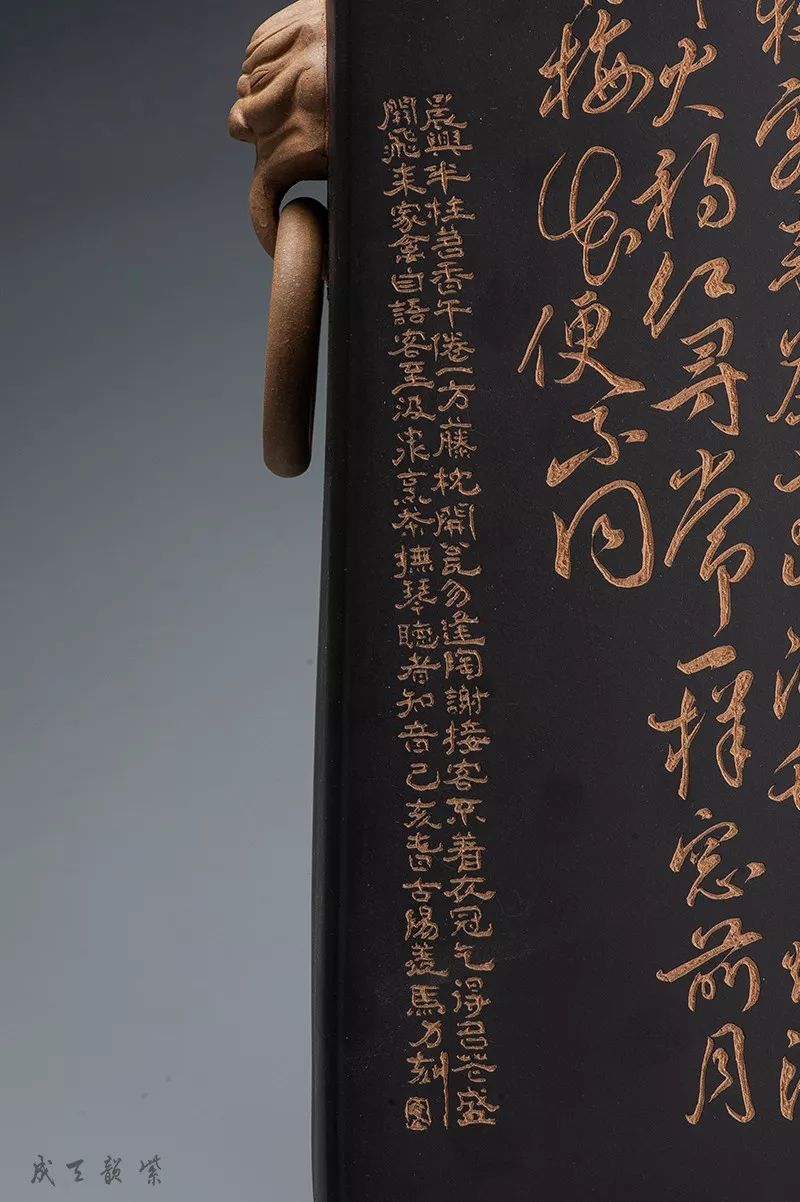 火初红寻常一样窗前月
梅花便不同
晨興半柱茗香午倦一方藤枕開瓮勿逢陶謝接客不着衣冠乞得名花盛
開飛來家禽自語客至汲泉烹茶撫琴聽者知音己亥春古陽羨馬力刻
紫韻天成